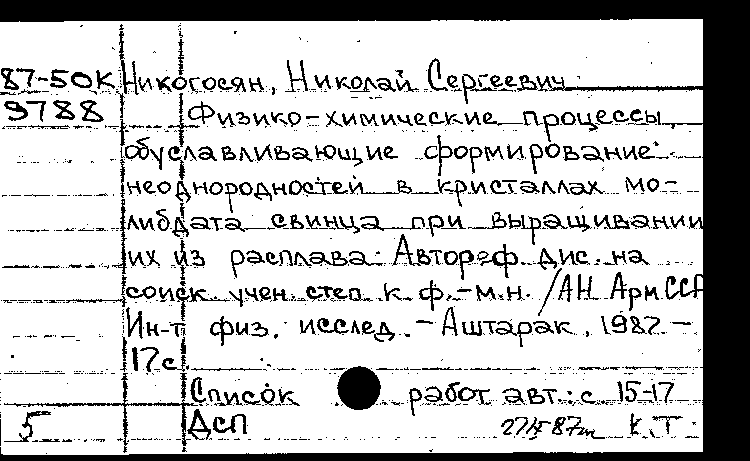 87-50К Никогосян, Николай Сергеевич
9788 Физико-химические процессы,
обуславливающие формирование
неоднородностей в кристаллах мо-
либдата свинца при выращивании
их из расплава: Автореф. дис. на
соиск. учен. степ. к. ф.-м.н. /АН АрмССР
Ин-т физ. исслед. - Аштарак, 1987 -
17с.
Список работ авт.: с. 15-17
5 ДСП К.Т.